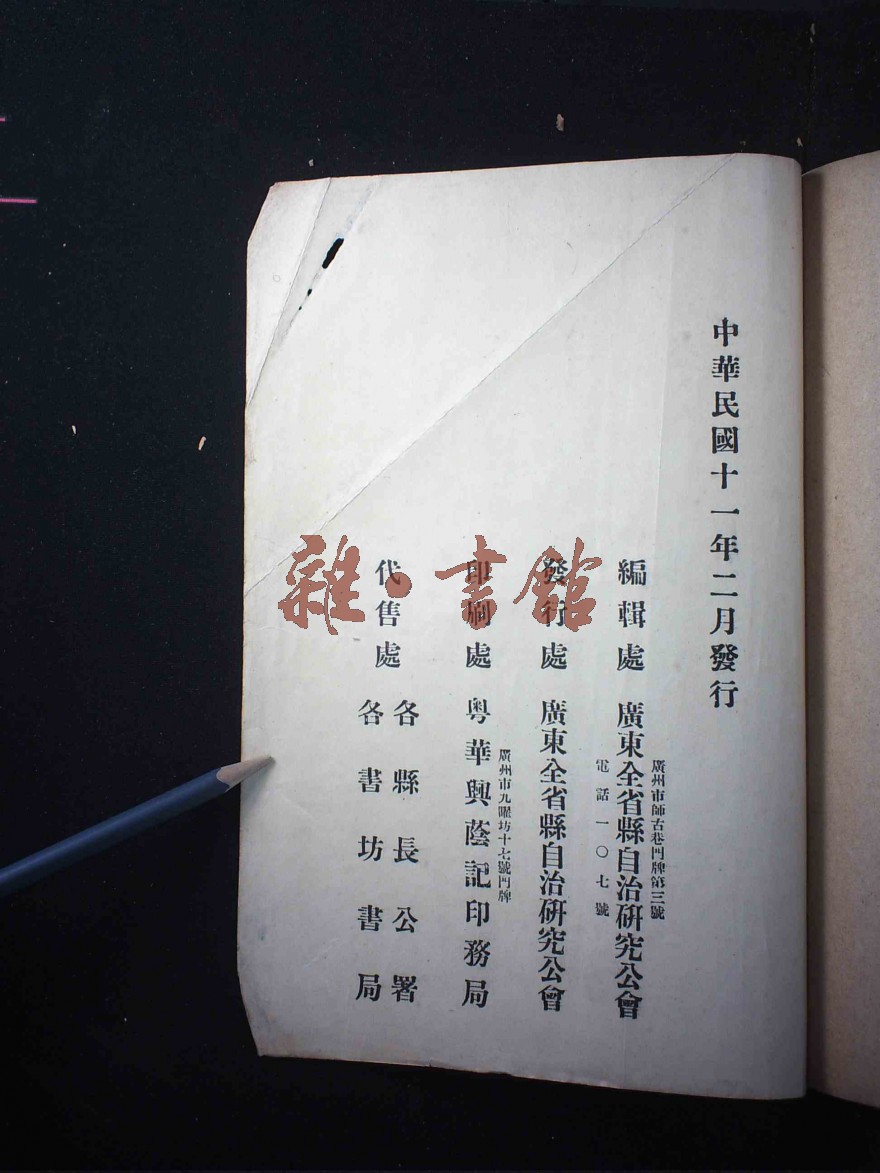 中華民國十一年二月發行
廣州市師古巷門牌第三號
編輯處 廣東全省縣自治研究公會
電話一〇七號
發行處 廣東全省縣自治研究公會
廣州市九曜坊十七號門牌
印刷處 粵華興蔭記印務局
各縣長公署
代售處
各書坊書局
雜·書館